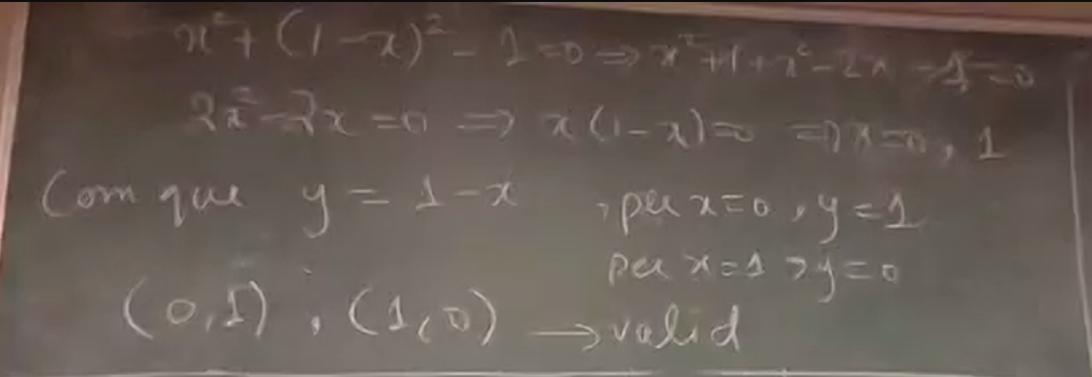 x² + (1 - x)² - 1 = 0 ⇒ x² + 1 + x² - 2x - 1 = 0
2x² - 2x = 0 ⇒ x(1 - x) = 0 ⇒ x = 0, 1
Com que y = 1 - x , per x = 0, y = 1
per x = 1 > y = 0
(0,1), (1,0) → valid